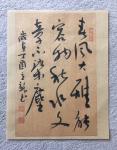 春風大雅能
容物秋水文
章不染塵
丁酉